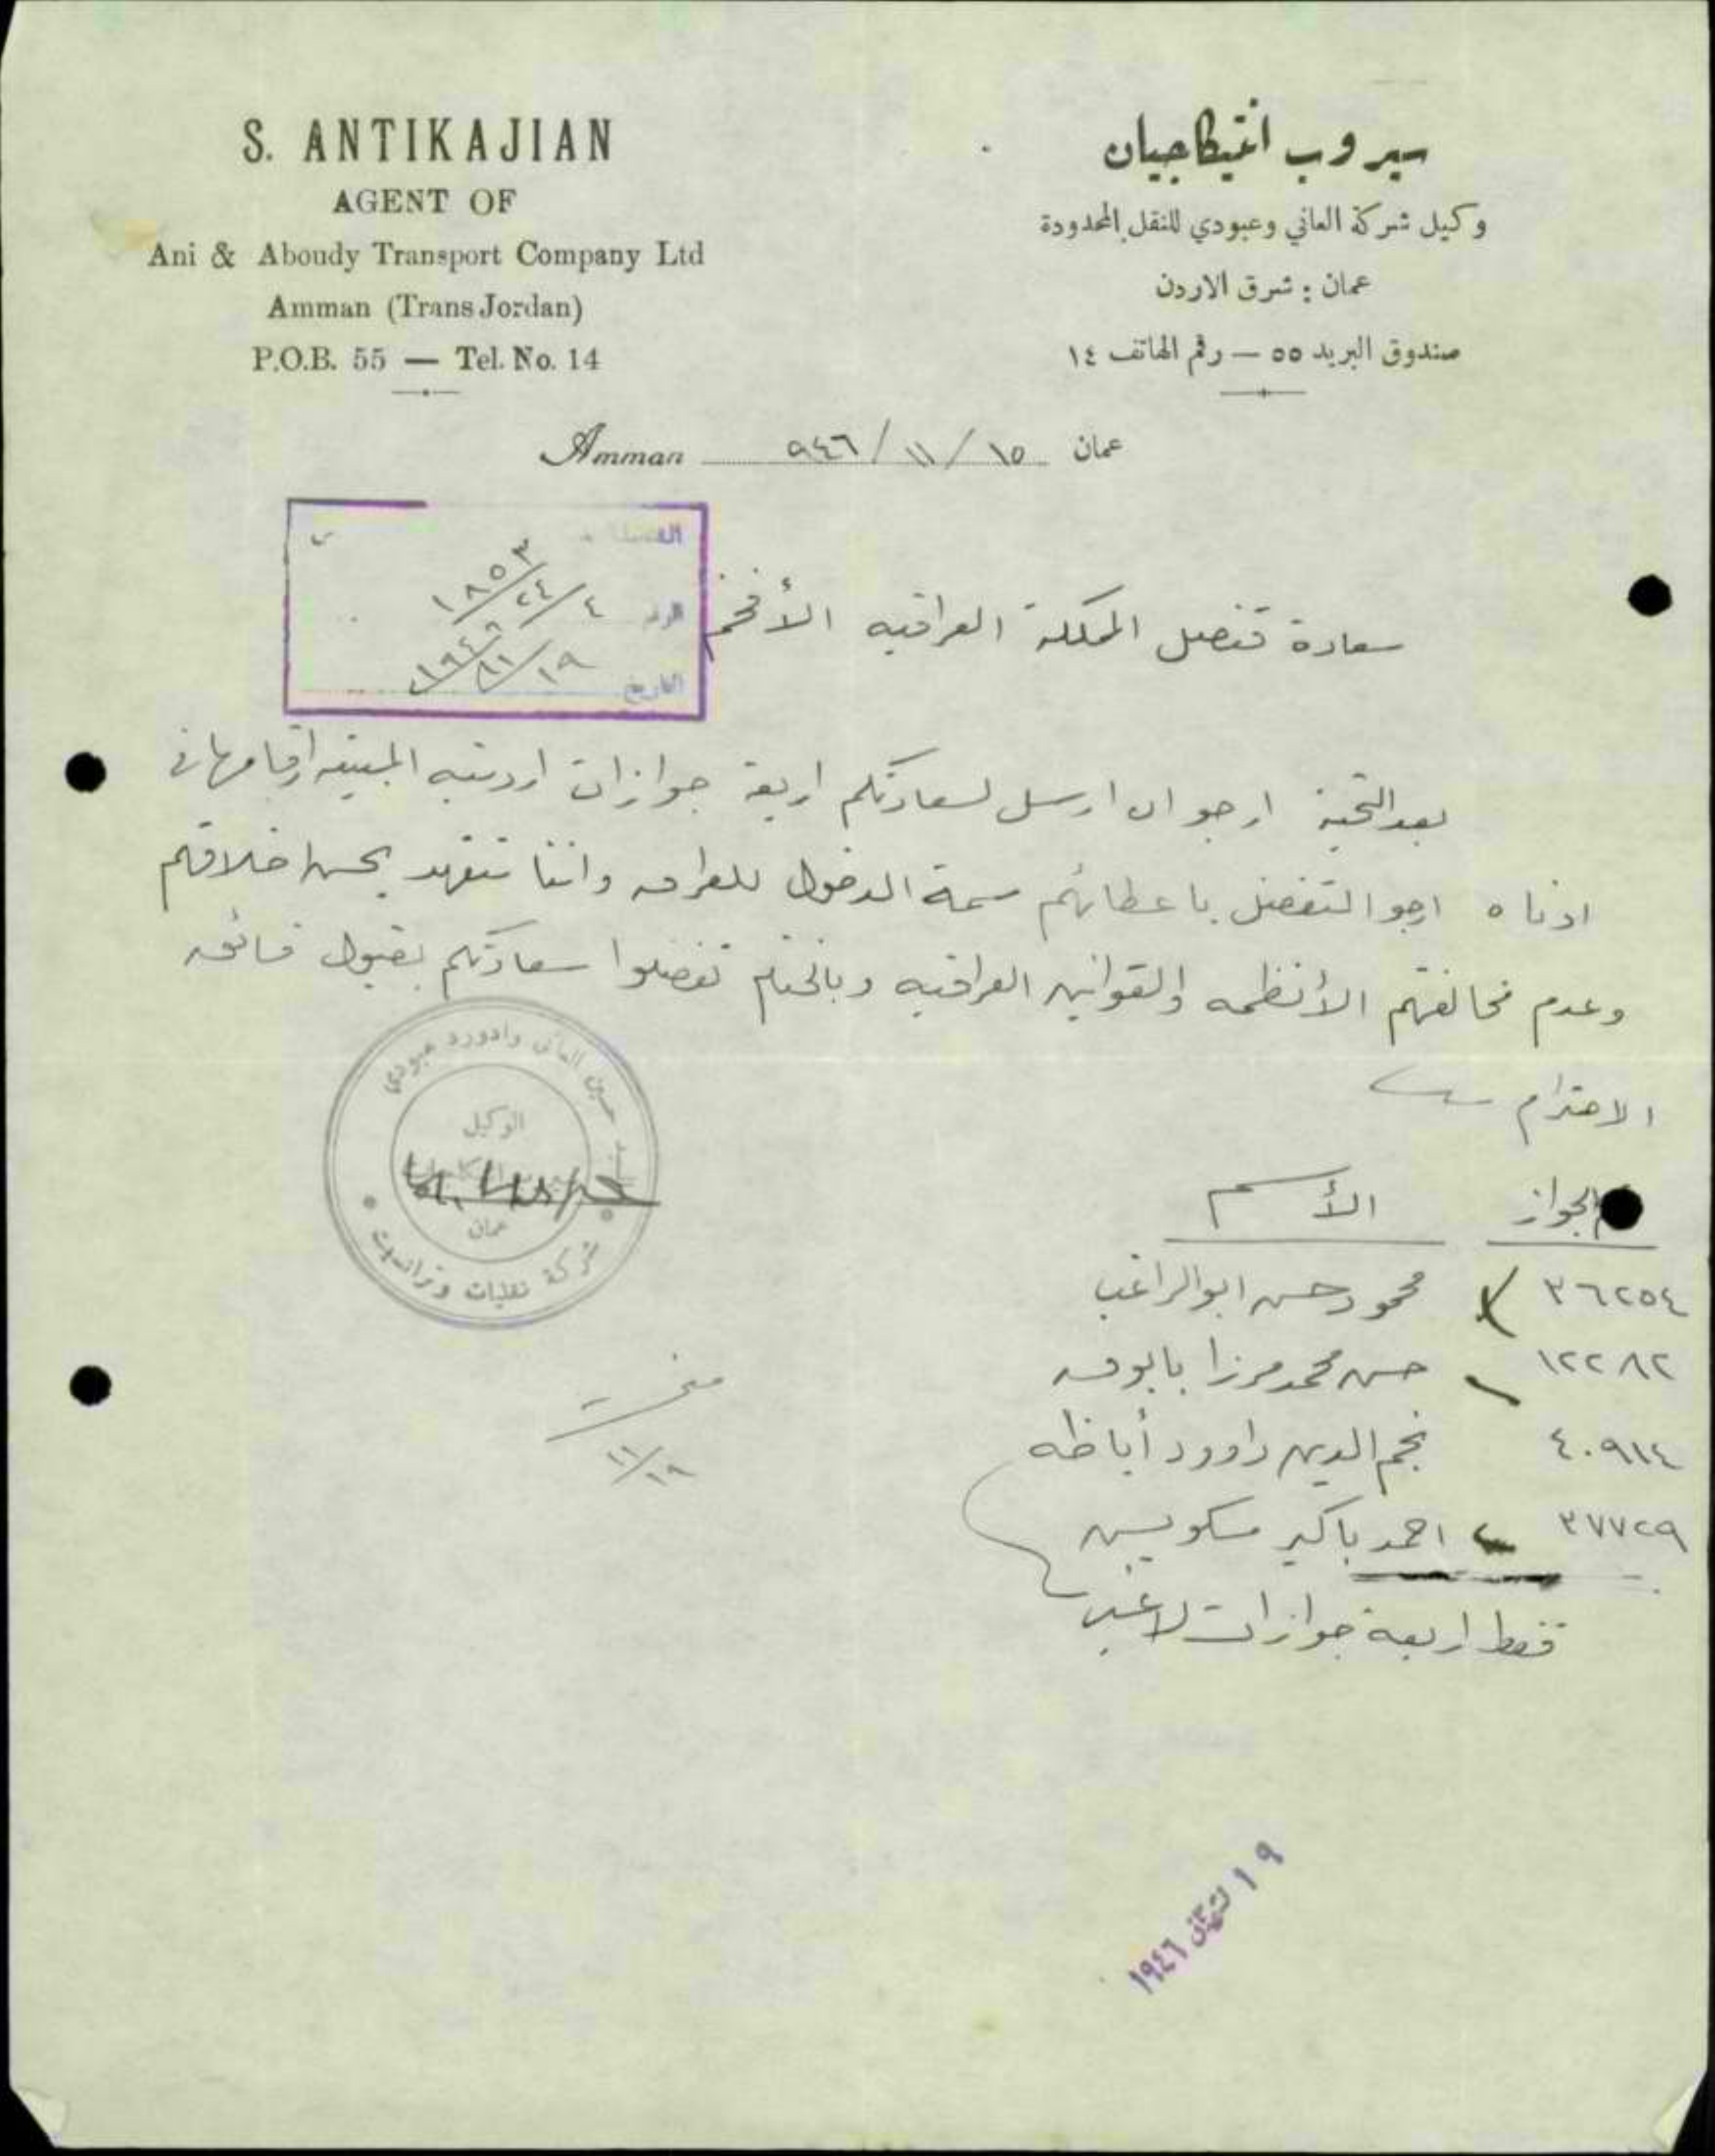 S. ANTIKAJIAN
AGENT OF
Ani & Aboudy Transport Company Ltd
Amman (Trans Jordan)
P.O.B. 55 — Tel. No. 14
سيروب انتيكاجيان
وكيل شركة العاني وعبودي للنقل المحدودة
عمان : شرق الاردن
صندوق البريد ٥٥ — رقم الهاتف ١٤
Amman ٩٤٦/١١/١٥ عمان
١٨٥٣
٤/٢٤
التاريخ ١٩/١١/١٩٤٦
سعادة قنصل المملكة العراقيه الأفخم
بعد التحية ارجو ان ارسل لسعادتكم اربعة جوازات اردنيه المبينه ارقامها
ادناه ارجو التفضل باعطائهم سمة الدخول للعراق واننا نتعهد بحسن اخلاقهم
وعدم مخالفتهم الأنظمه والقوانين العراقيه وبالختام تفضلوا سعادتكم بقبول فائق
الاحترام
سيد حسين العاني وادورد عبودي
الوكيل
عمان
شركة نقليات وترانسيت
الجواز الأسم
٣٦٢٥٤ محمود حسن ابوالراغب
١٢٢٨٢ حسن محمد مرزا بابوق
٤٠٩١٤ نجم الدين داوود أباظه
٣٧٧٢٩ احمد باكير مسكويس
فقط اربعة جوازات لاغير
١١/١٩
١٩ ١٩٤٦